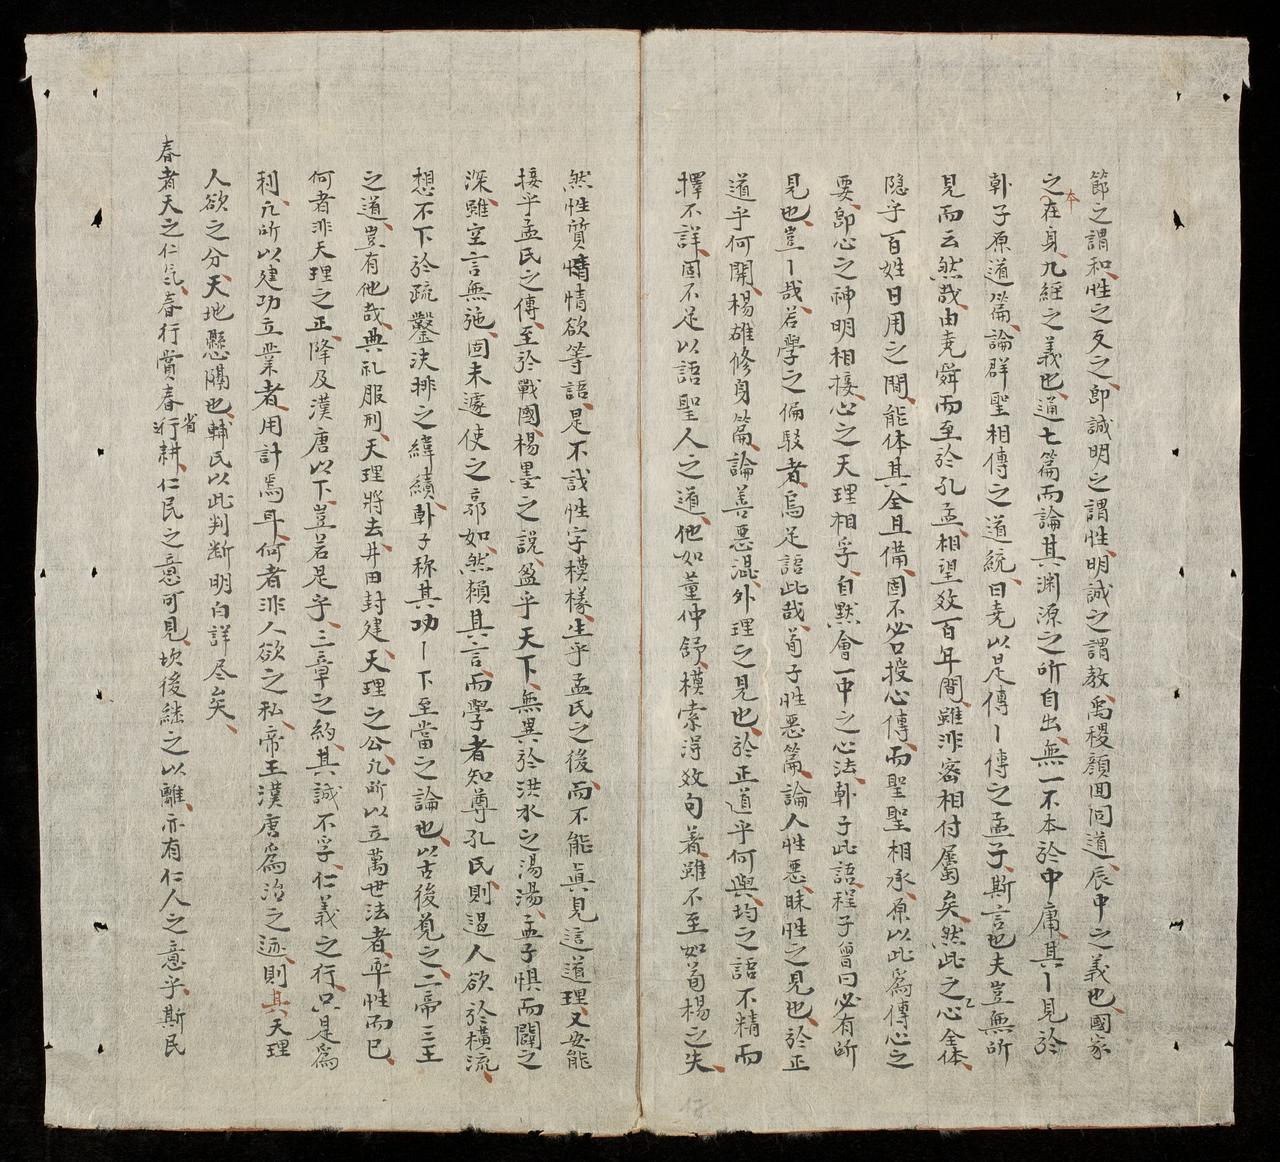 節之謂和性之反之即誠明之謂性明誠之謂教禹稷顏囬同道辰中之義也國家
之本在身九經之義也通七篇而論其渊源之所自出無一不本於中庸其丨見於
軒子原道篇論群聖相傳之道統曰尭以是傳丨傳之孟子斯言也夫豈無所
見而云然哉由尭舜而至於孔孟相望数百年間雖非容相付屬矣然此之心全体
隐乎百姓日用之間能体其全且備固不必口授心傳而聖聖相承原以此為傳心之
要即心之神明相接心之天理相孚自黙會一中之心法軒子此語程子曾曰必有所
見也豈丨哉若學之偏駁者烏足語此哉荀子性惡篇論人性惡昧性之見也於正
道乎何開楊雄修身篇論善惡混外理之見也於正道乎何與均之語不精而
擇不詳固不足以語聖人之道他如董仲舒模索淂数句著雖不至如荀楊之失
然性質情情欲等語是不識性字模樣生乎孟氏之後而不能真見這道理又安能
接乎孟氏之傳至於戰國楊墨之說盈乎天下無異於洪水之湯湯孟子惧而闢之
深雖空言無施回未遽使之廓如然賴其言而學者知尊孔氏則遏人欲於横流
想不下於疏鑿决排之緯績軒子称其功丨下至當之論也以古後覓之二帝三王
之道豈有他哉典礼服刑天理將去井田封建天理之公凢所以立萬世法者率性而已
何者非天理之正降及漢唐以下豈若是乎三章之約其誠不孚仁義之行只是為
利凢所以建功立業者用計焉耳何者非人欲之私帝王漢唐為治之迹則其天理
人欲之分天地懸隔也輔民以此判断明白詳尽矣
春者天之仁氣春行賞春省行耕仁民之意可見坎後継之以離亦有仁人之意乎斯民